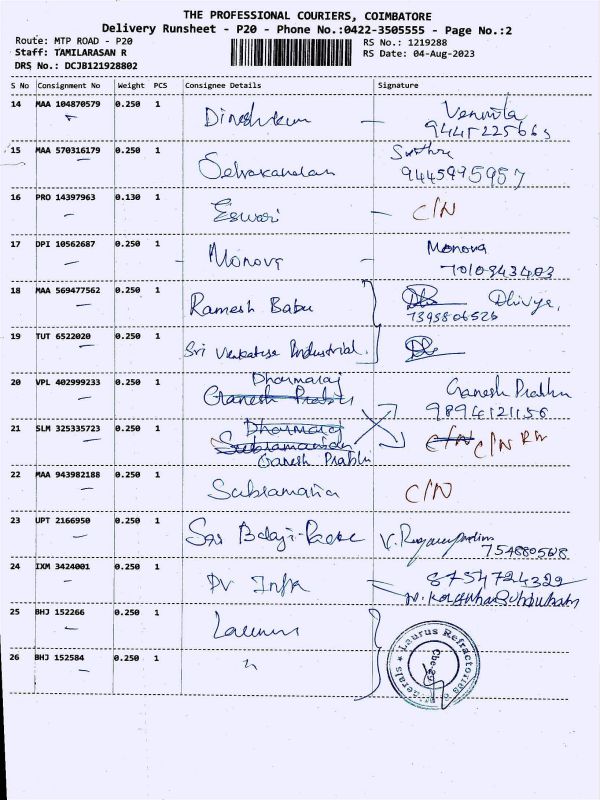 THE PROFESSIONAL COURIERS, COIMBATORE
Delivery Runsheet - P20 - Phone No.:0422-3505555 - Page No.:2
Route: MTP ROAD - P20 RS No.: 1219288
Staff: TAMILARASAN R RS Date: 04-Aug-2023
DRS No.: DCJB121928802
S No Consignment No Weight PCS Consignee Details Signature
14 MAA 104870579 0.250 1
15 MAA 570316179 0.250 1 9445995957
16 PRO 14397963 0.130 1 Eswari C/N
17 DPI 10562687 0.250 1 Monova Monova
7010943403
18 MAA 569477562 0.250 1 Ramesh Babu Dhivya,
7395806526
19 TUT 6522020 0.250 1 Sri Venkatise Industrial.
20 VPL 402999233 0.250 1 Dharmaraj Ganesh Prabhu
Ganesh Prabhu 9894121156
21 SLM 325335723 0.250 1 Dharmaraj C/N C/N
Ganesh Prabhu
22 MAA 943982188 0.250 1 C/N
23 UPT 2166950 0.250 1 Sri Balaji
754880568
24 IXM 3424001 0.250 1 PV Infra 8754724329
25 BHJ 152266 0.250 1
26 BHJ 152584 0.250 1 "
Laurus Refractories
Cbe-29